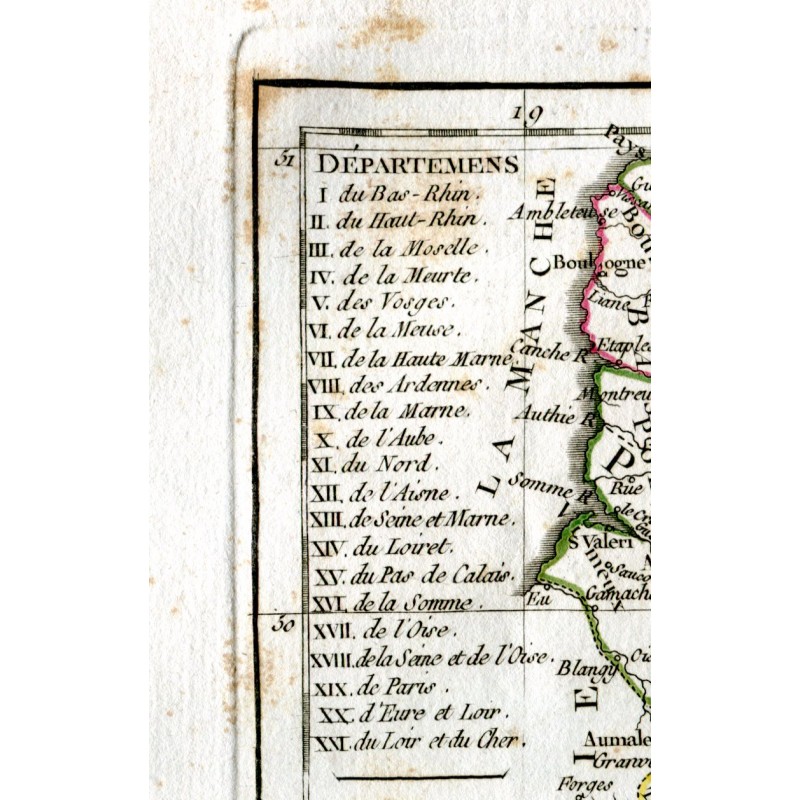 19
51
DÉPARTEMENS
I du Bas-Rhin.
II. du Haut-Rhin.
III. de la Moselle.
IV. de la Meurte.
V. des Vosges.
VI. de la Meuse.
VII. de la Haute Marne.
VIII. des Ardennes.
IX. de la Marne.
X. de l'Aube.
XI. du Nord.
XII. de l'Aisne.
XIII. de Seine et Marne.
XIV. du Loiret.
XV. du Pas de Calais.
XVI. de la Somme.
50
XVII. de l'Oise.
XVIII. de la Seine et de l'Oise.
XIX. de Paris.
XX. d'Eure et Loir.
XXI. du Loir et du Cher.
LA MANCHE
Pays
Ambleteuse
Boulogne
Liane
Canche R
Etaple
Montreu
Authie R
Somme R
Rue
le Cr
S Valeri
Vimeux
Eu
Gamach
Blangy
Aumale
Forges